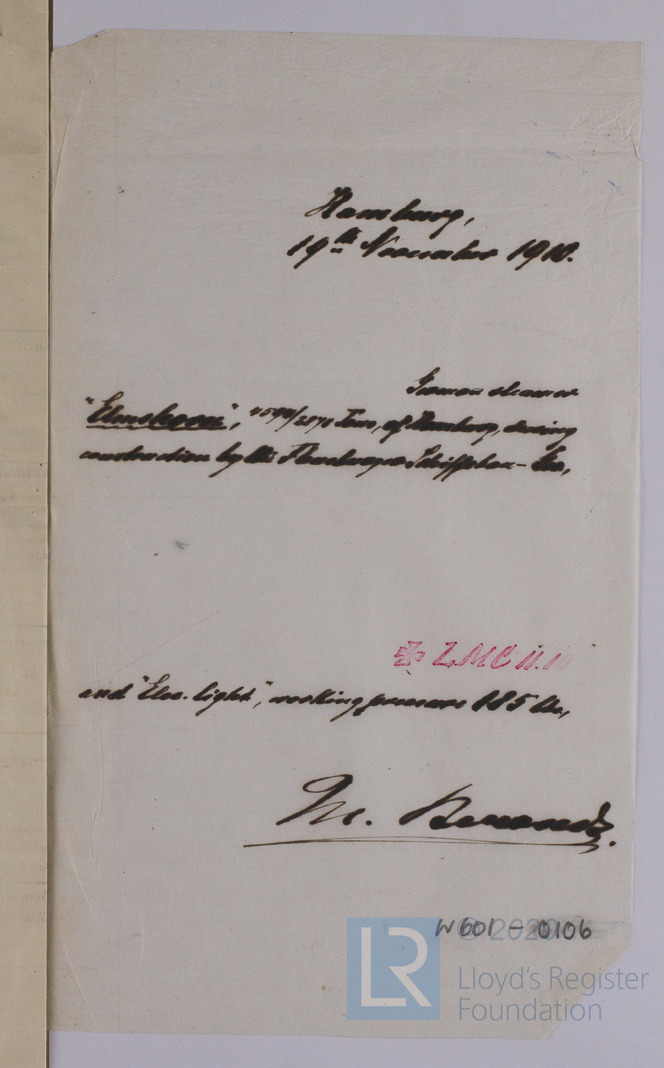 Hamburg,
19th November 1910.
German steamer
"Elmshorn", Tons, of Hamburg, during
construction by the Flensburger Schiffsbau-Ges,
✠ LMC 11.10
and "Elec. light", working pressure 185 lbs,
W601-0106
© 2020
LR
Lloyd's Register
Foundation